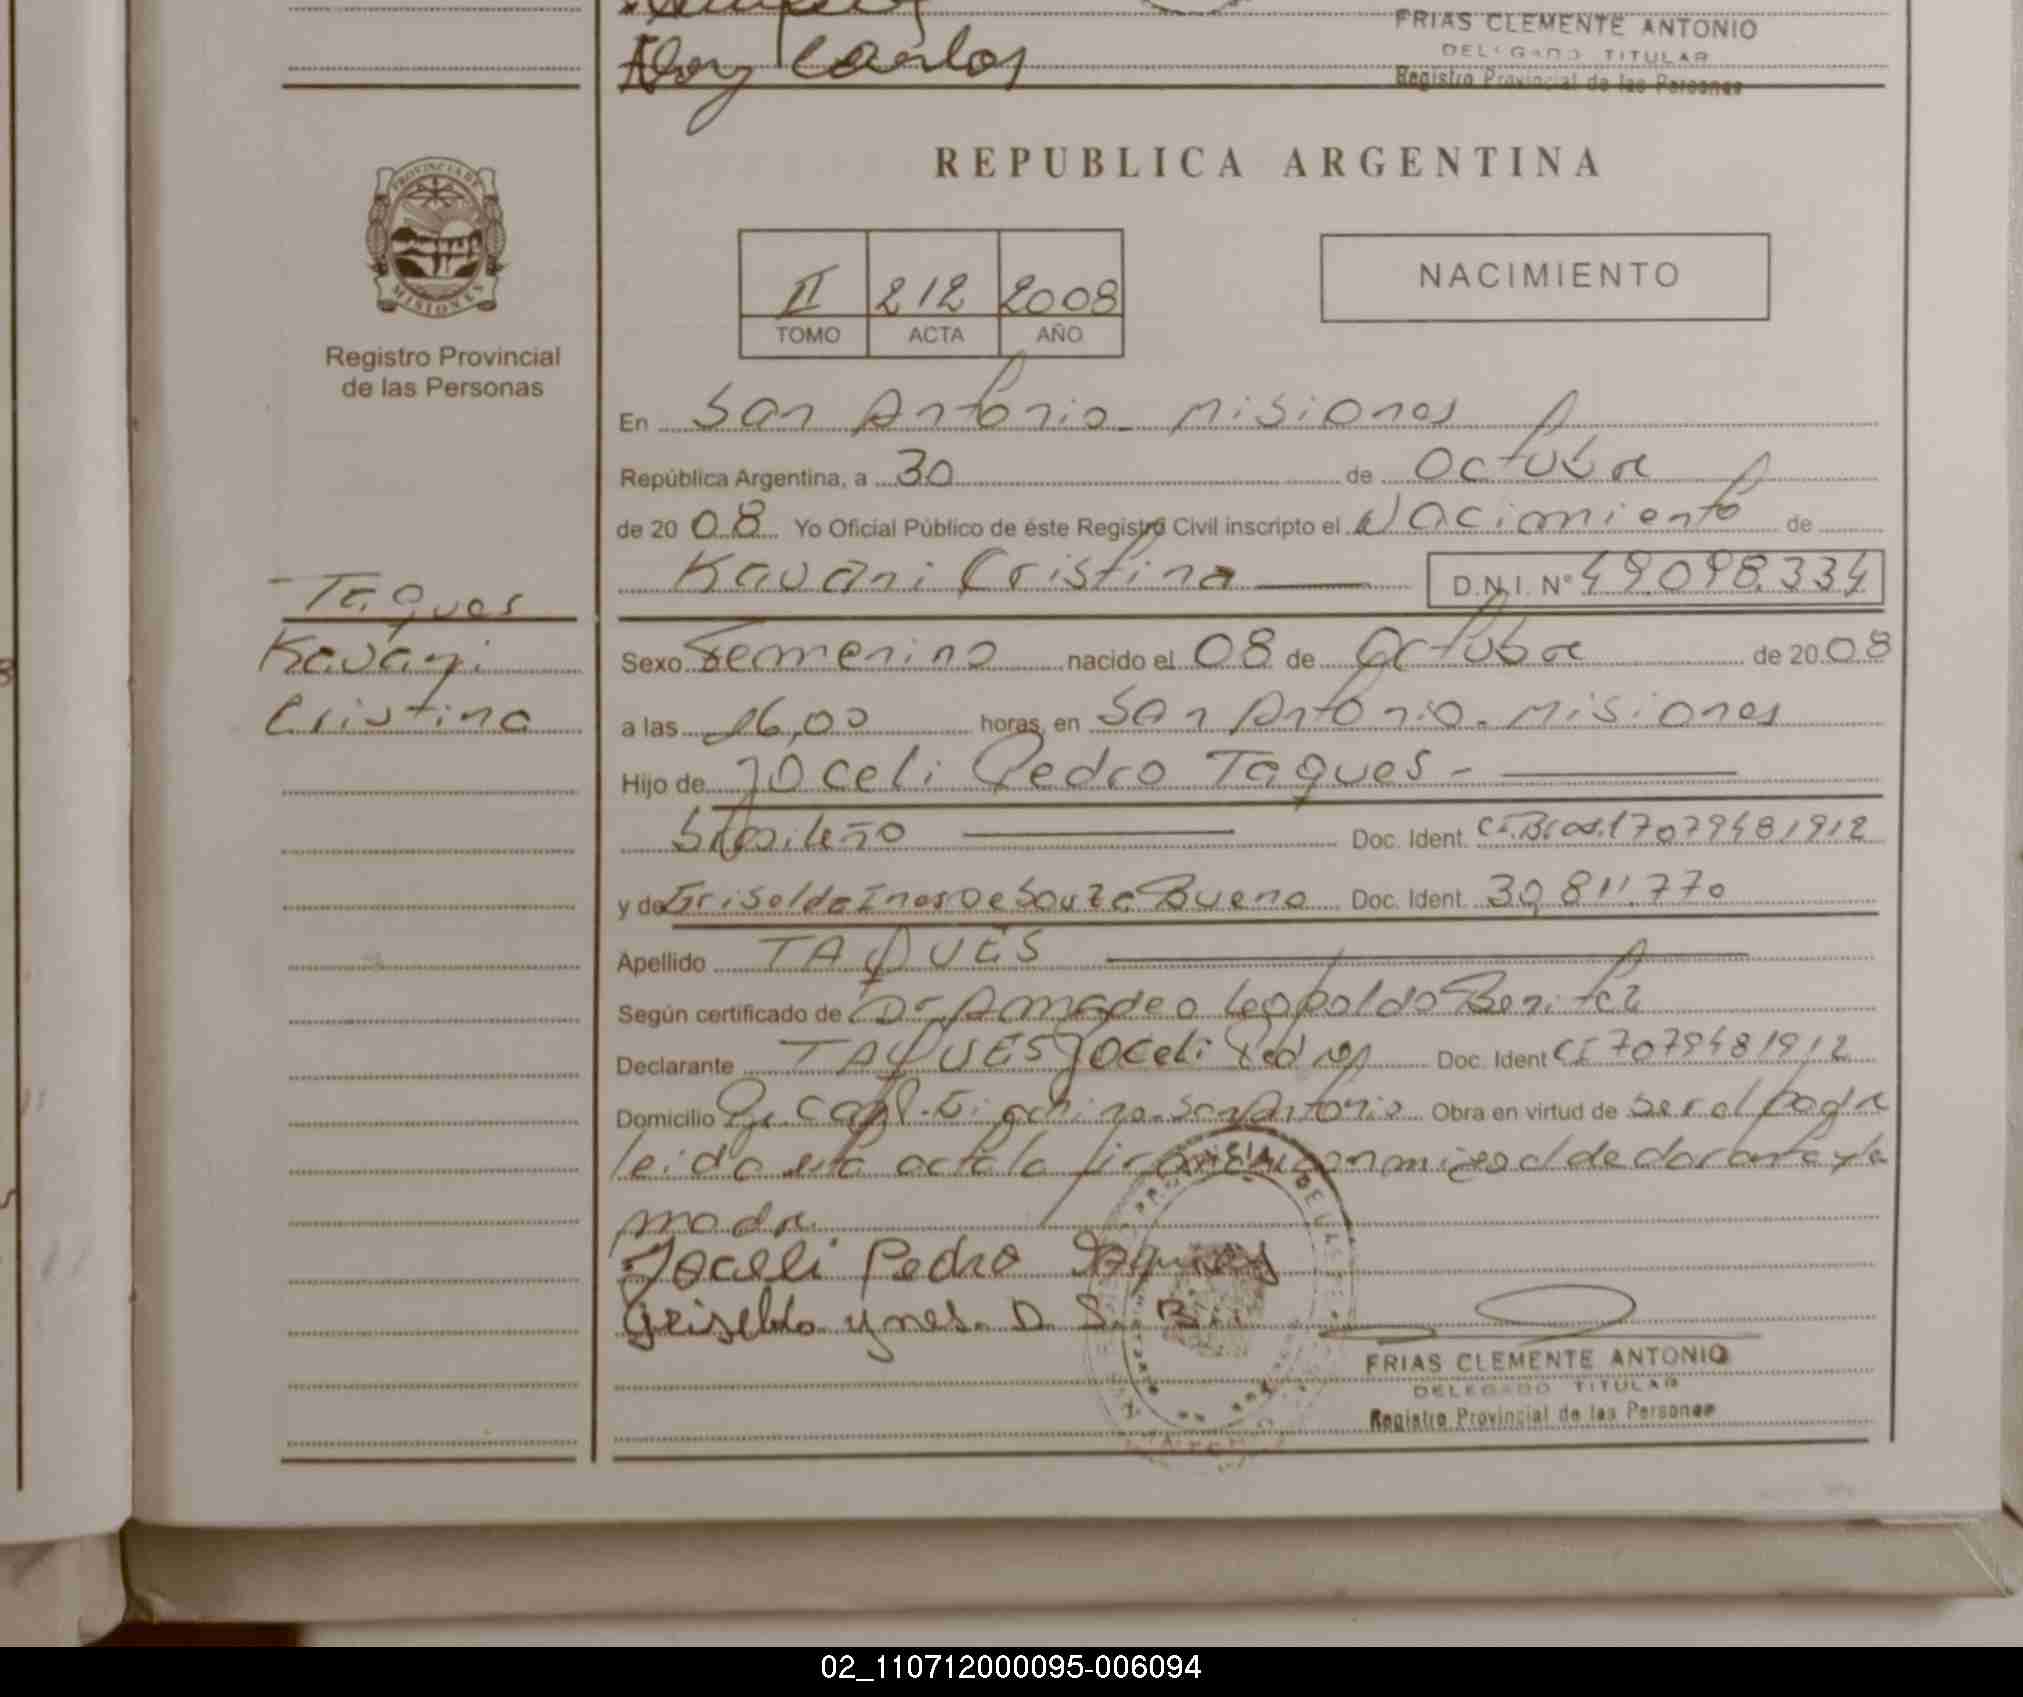 Eloy Carlos
FRIAS CLEMENTE ANTONIO
DELEGADO TITULAR
Registro Provincial de las Personas
PROVINCIA DE
MISIONES
Registro Provincial
de las Personas
REPUBLICA ARGENTINA
II 212 2008
TOMO ACTA AÑO
NACIMIENTO
En San Antonio - Misiones
República Argentina, a 30 de Octubre
de 2008 Yo Oficial Público de éste Registro Civil inscripto el Nacimiento de
Kauani Cristina D.N.I. Nº 49.098.334
Taques
Kauani
Cristina
Sexo Femenino nacido el 08 de Octubre de 2008
a las 16,00 horas, en San Antonio - Misiones
Hijo de Joceli Pedro Taques -
brasileño Doc. Ident. C.I.Bras.17079481912
y de Griselda Ines De Souza Bueno Doc. Ident. 30.811.770
Apellido TAQUES
Según certificado de Dr Amadeo Leopoldo Benitez
Declarante TAQUES Joceli Pedro Doc. Ident CI 7079481912
Domicilio Capl. Giachino - San Antonio Obra en virtud de ser el padre
leida esta acta la firman conmigo el declarante y la
madre
Joceli Pedro Taques
Griselda ynes. D. S. B.
FRIAS CLEMENTE ANTONIO
DELEGADO TITULAR
Registro Provincial de las Personas
02_110712000095-006094